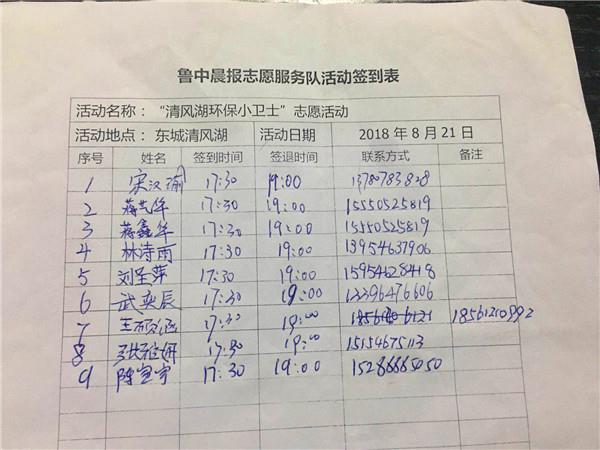 鲁中晨报志愿服务队活动签到表
活动名称：“清风湖环保小卫士”志愿活动
活动地点： 东城清风湖 活动日期 2018 年 8 月 21 日
序号 姓名 签到时间 签退时间 联系方式 备注
1 宋汉 17:30 19:00 13780783828
2 蒋 华 17:30 19:00 15550525819
3 蒋鑫华 17:30 19:00 15550525819
4 林诗雨 17:30 19:00 13954637906
5 刘 萍 17:30 19:00 15954628418
6 武奕辰 17:30 19:00 13396476606
7 王 涵 17:30 19:00 18561210992
8 张雅妍 17:30 19:00 15154675113
9 陈宣宇 17:30 19:00 15286665050